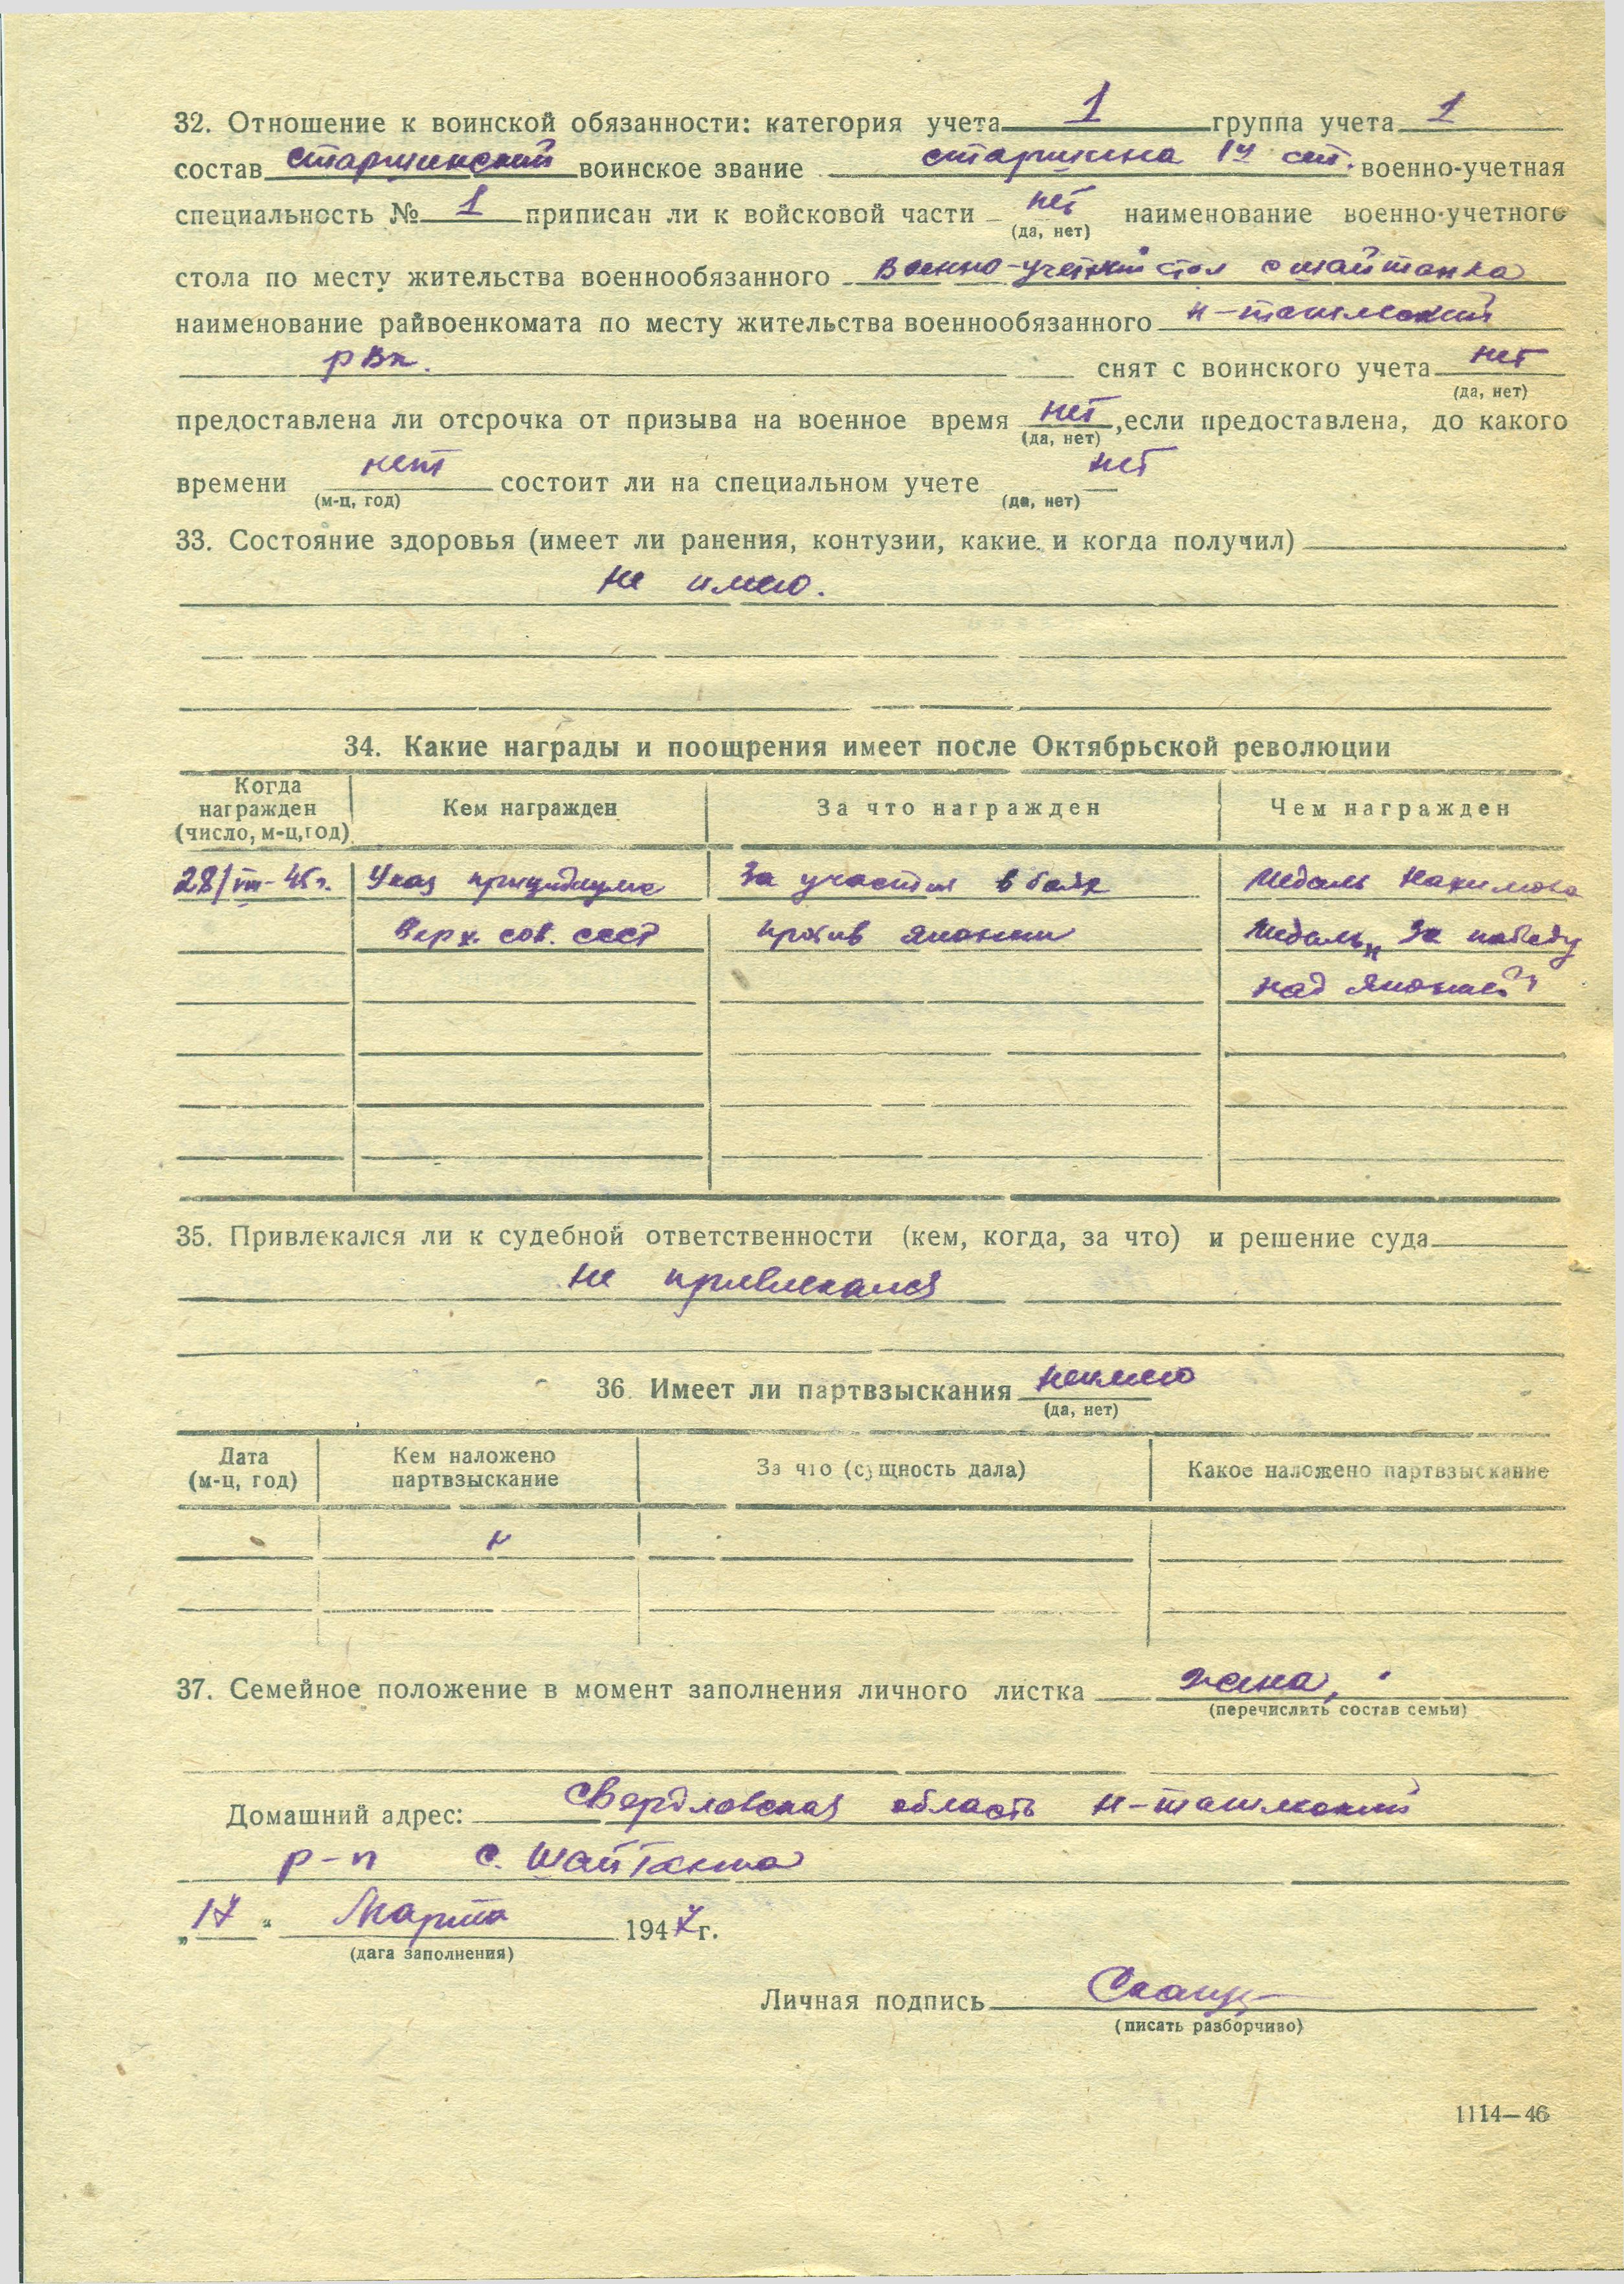 32. Отношение к воинской обязанности: категория учета 1 группа учета 1
состав старшинский воинское звание старшина 1й ст. военно-учетная
специальность № 1 приписан ли к войсковой части нет наименование военно-учетного
(да, нет)
стола по месту жительства военнообязанного Военно-учетний стол с шайтанка
наименование райвоенкомата по месту жительства военнообязанного Н-тагильский
рвк. снят с воинского учета нет
(да, нет)
предоставлена ли отсрочка от призыва на военное время нет, если предоставлена, до какого
(да, нет)
времени нет состоит ли на специальном учете нет
(м-ц, год) (да, нет)
33. Состояние здоровья (имеет ли ранения, контузии, какие и когда получил)
не имею.
34. Какие награды и поощрения имеет после Октябрьской революции
Когда награжден (число, м-ц, год) Кем награжден За что награжден Чем награжден
28/VIII-45г. Указ За участия в боях Медаль Нахимова
Верх. сов. ссср против японии Медаль „За победу
над Японией"
35. Привлекался ли к судебной ответственности (кем, когда, за что) и решение суда
не привлекался
36. Имеет ли партвзыскания неимею
(да, нет)
Дата (м-ц, год) Кем наложено партвзыскание За что (сущность дала) Какое наложено партвзыскание
37. Семейное положение в момент заполнения личного листка жена,
(перечислить состав семьи)
Домашний адрес: Свердловская область Н-тагильский
р-н с. Шайтанка
„17" Марта 1947г.
(дата заполнения)
Личная подпись
(писать разборчиво)
1114—46